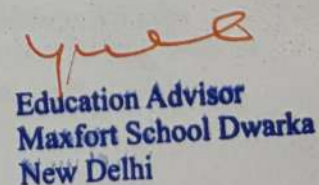 Education Advisor
Maxfort School Dwarka
New Delhi